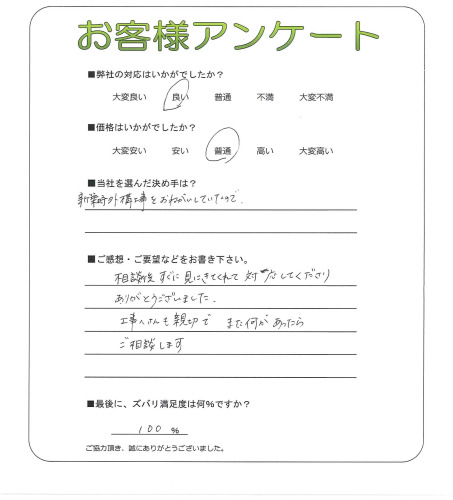 お客様アンケート
■弊社の対応はいかがでしたか？
大変良い　良い　普通　不満　大変不満
■価格はいかがでしたか？
大変安い　安い　普通　高い　大変高い
■当社を選んだ決め手は？
新築時外構工事をおねがいしていたので.
■ご感想・ご要望などをお書き下さい。
相談後すぐに見にきてくれて 対応してくださり
ありがとうございました.
工事人さんも親切で　また何かあったら
ご相談します
■最後に、ズバリ満足度は何%ですか？
100 %
ご協力頂き、誠にありがとうございました。